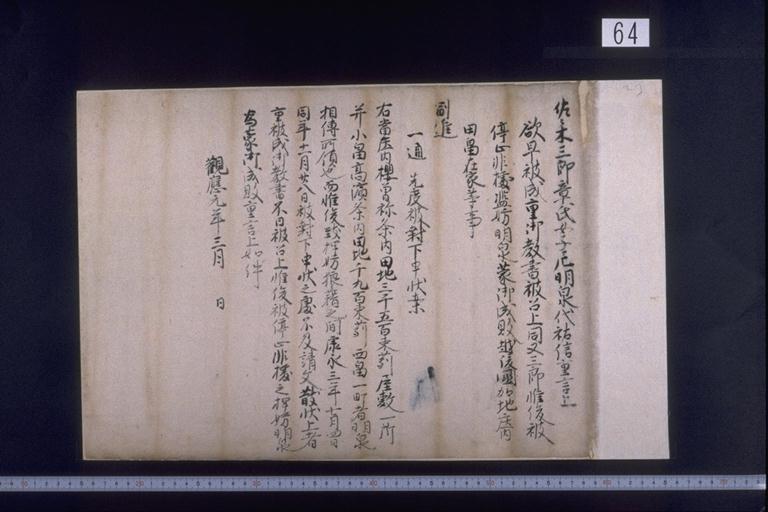 64
佐々木三郎章氏女子尼明泉代祐信重言上
欲早被成重御教書被召上同又三郎惟俊被
停止非據濫妨明泉蒙御成敗越後國加地庄内
田畠在家等事
副進
一通 先度被封下申状案
右當庄内櫻曽祢条内田地三千五百束苅屋敷一所
并小畠高濱条内田地千九百束苅 西畠一町者明泉
相傳所領也而惟俊致押妨狼藉之間康永三年十月
同年十一月廿八日被封下申状之處不及請文散状上者
重被成御教書不日被召上惟俊被停止非據之押妨明泉
為蒙御成敗重言上如件
觀應元年三月 日